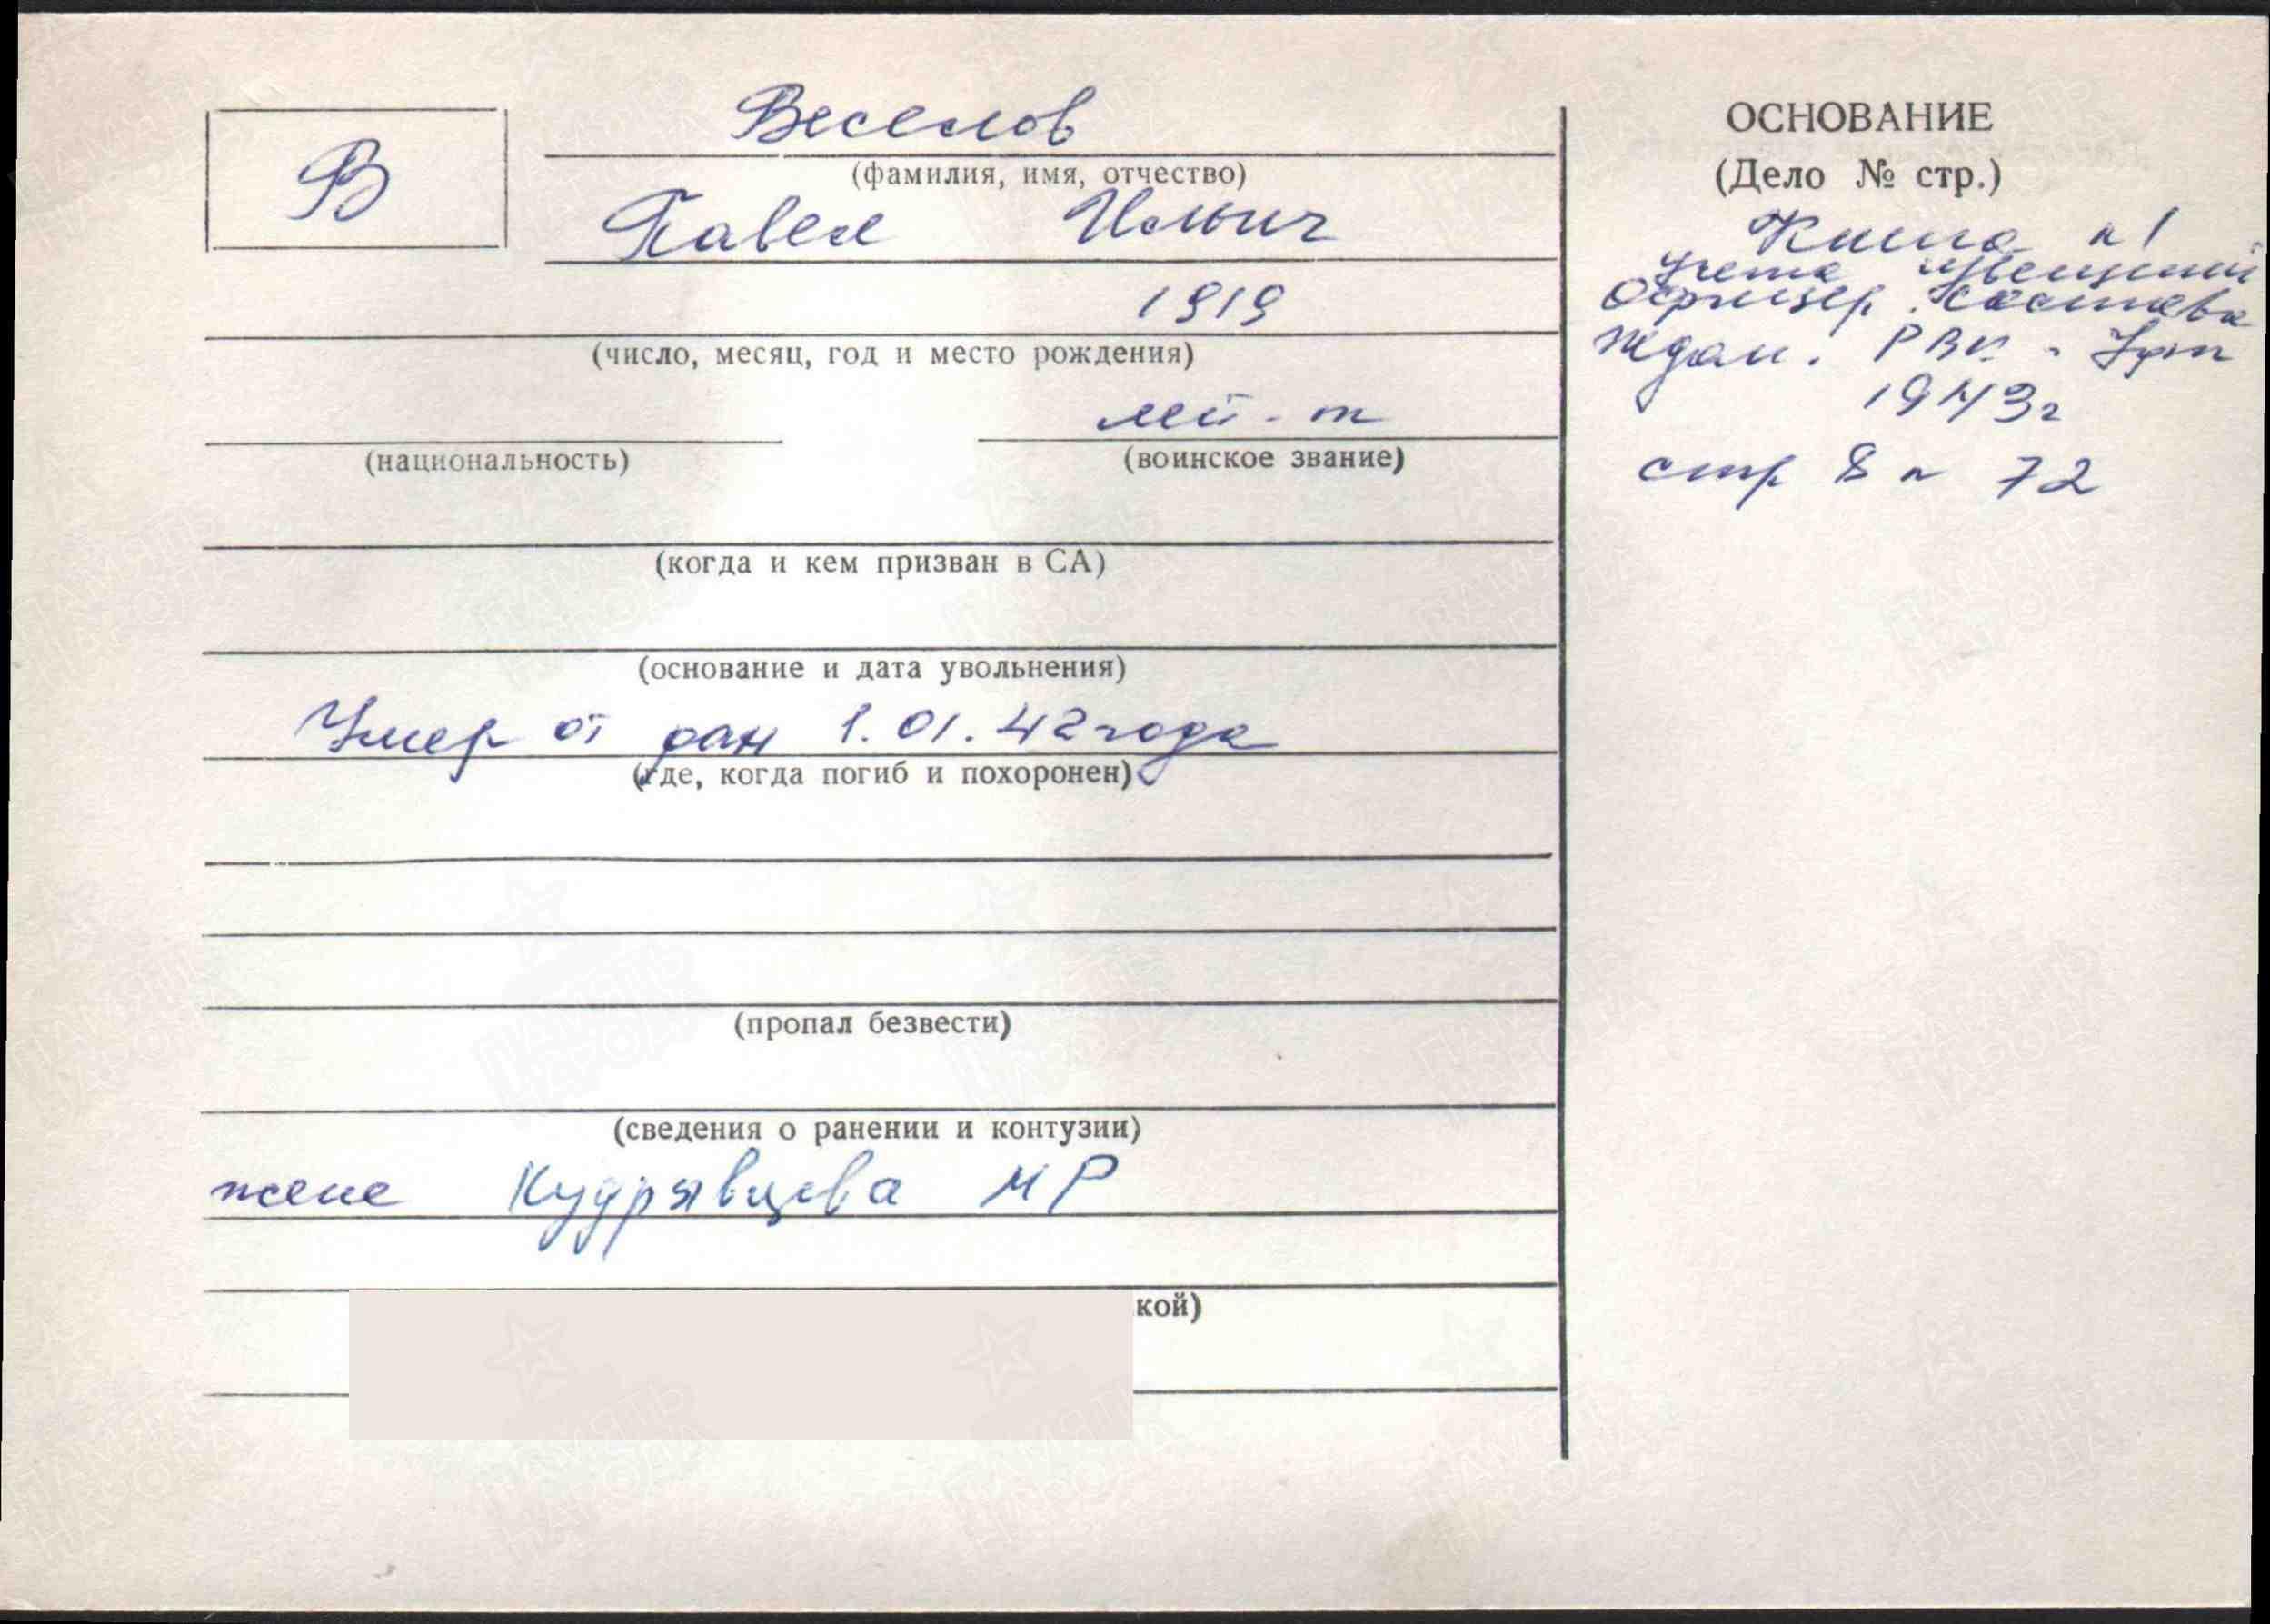 В
Веселов
(фамилия, имя, отчество)
Павел Ильич
1919
(число, месяц, год и место рождения)
лей-т
(национальность)
(воинское звание)
(когда и кем призван в СА)
(основание и дата увольнения)
Умер от ран 1.01.42 года
(где, когда погиб и похоронен)
(пропал безвести)
(сведения о ранении и контузии)
жене Кудрявцева М Р
кой)
ОСНОВАНИЕ
(Дело № стр.)
Книга н 1
учета извещений
офицер. состава
Ждан. РВК
1943г
стр 8 н 72
ПАМЯТЬ НАРОДА